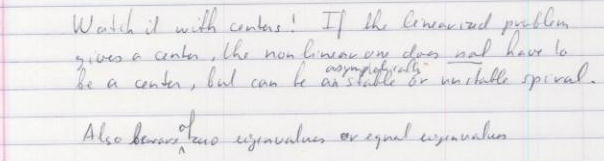 Watch it with centers! If the linearized problem
gives a center, the nonlinear one does not have to
be a center, but can be an asymptotically stable or unstable spiral.
Also beware of zero eigenvalues or equal eigenvalues